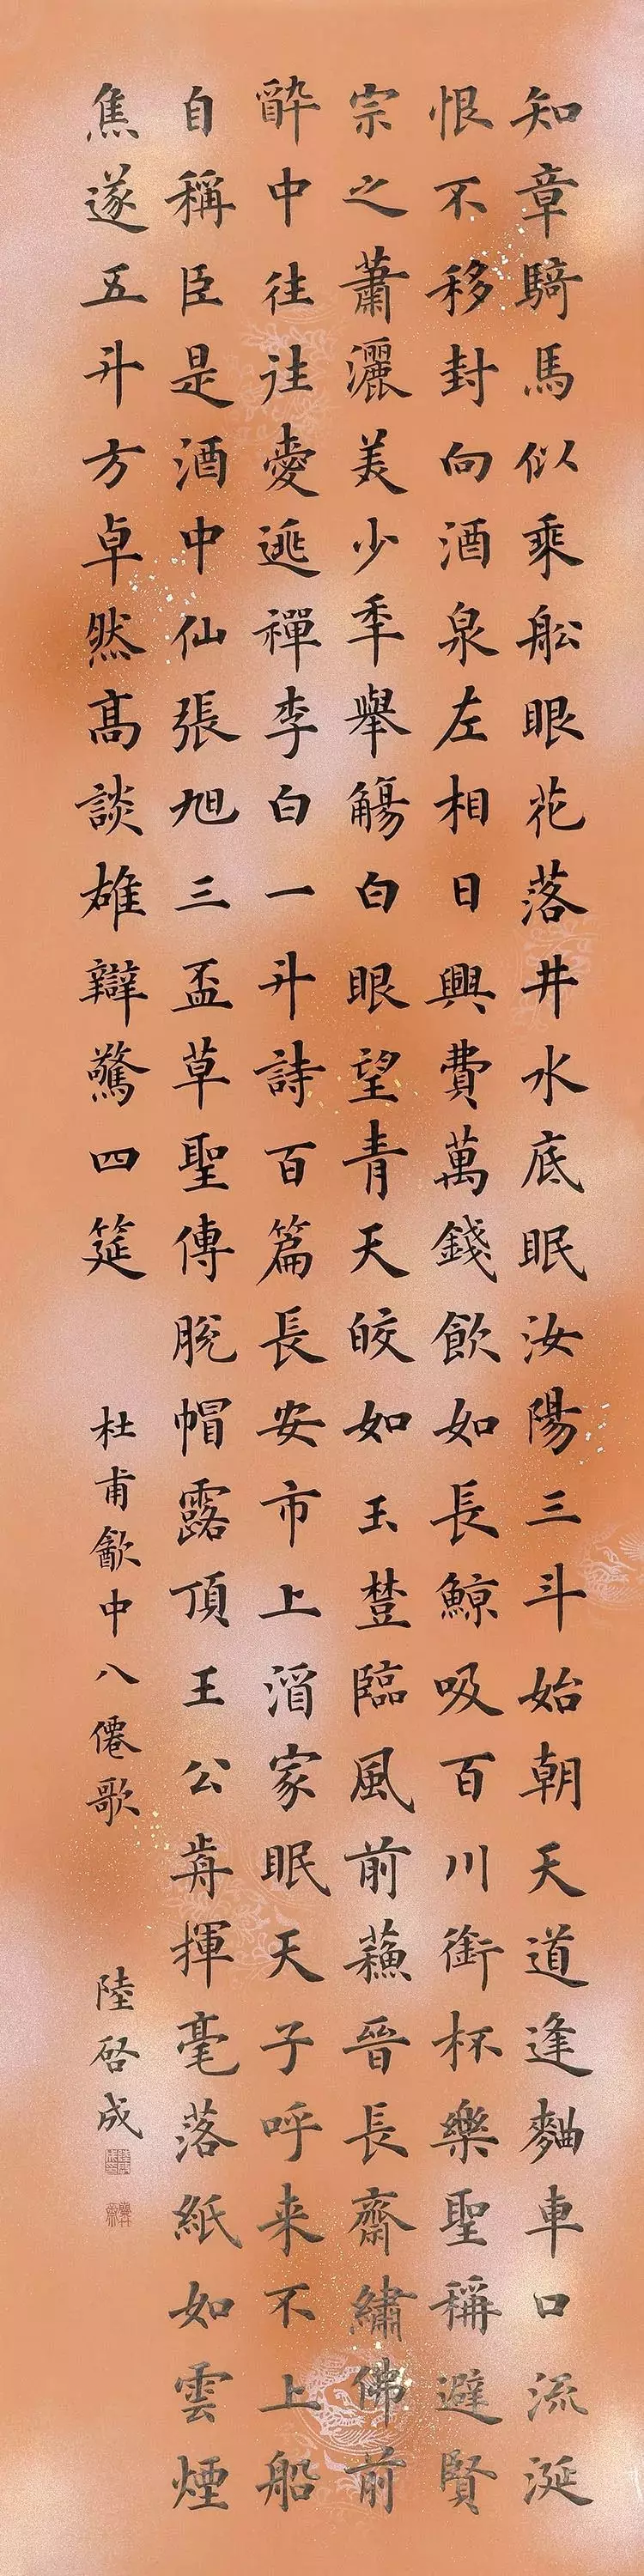 知章騎馬似乘舩眼花落井水底眠汝陽三斗始朝天道逢麯車口流涎
恨不移封向酒泉左相日興費萬錢飲如長鯨吸百川衘杯樂聖稱避賢
宗之蕭灑美少秊舉觴白眼望青天皎如玉樹臨風前蘓晉長齋繡佛前
醉中往往愛逃禪李白一升詩百篇長安市上酒家眠天子呼来不上船
自稱臣是酒中仙張旭三盃草聖傳脫帽露頂王公前揮毫落紙如雲煙
焦遂五升方卓然高談雄辯驚四筵
杜甫㱃中八僊歌
陸啓成